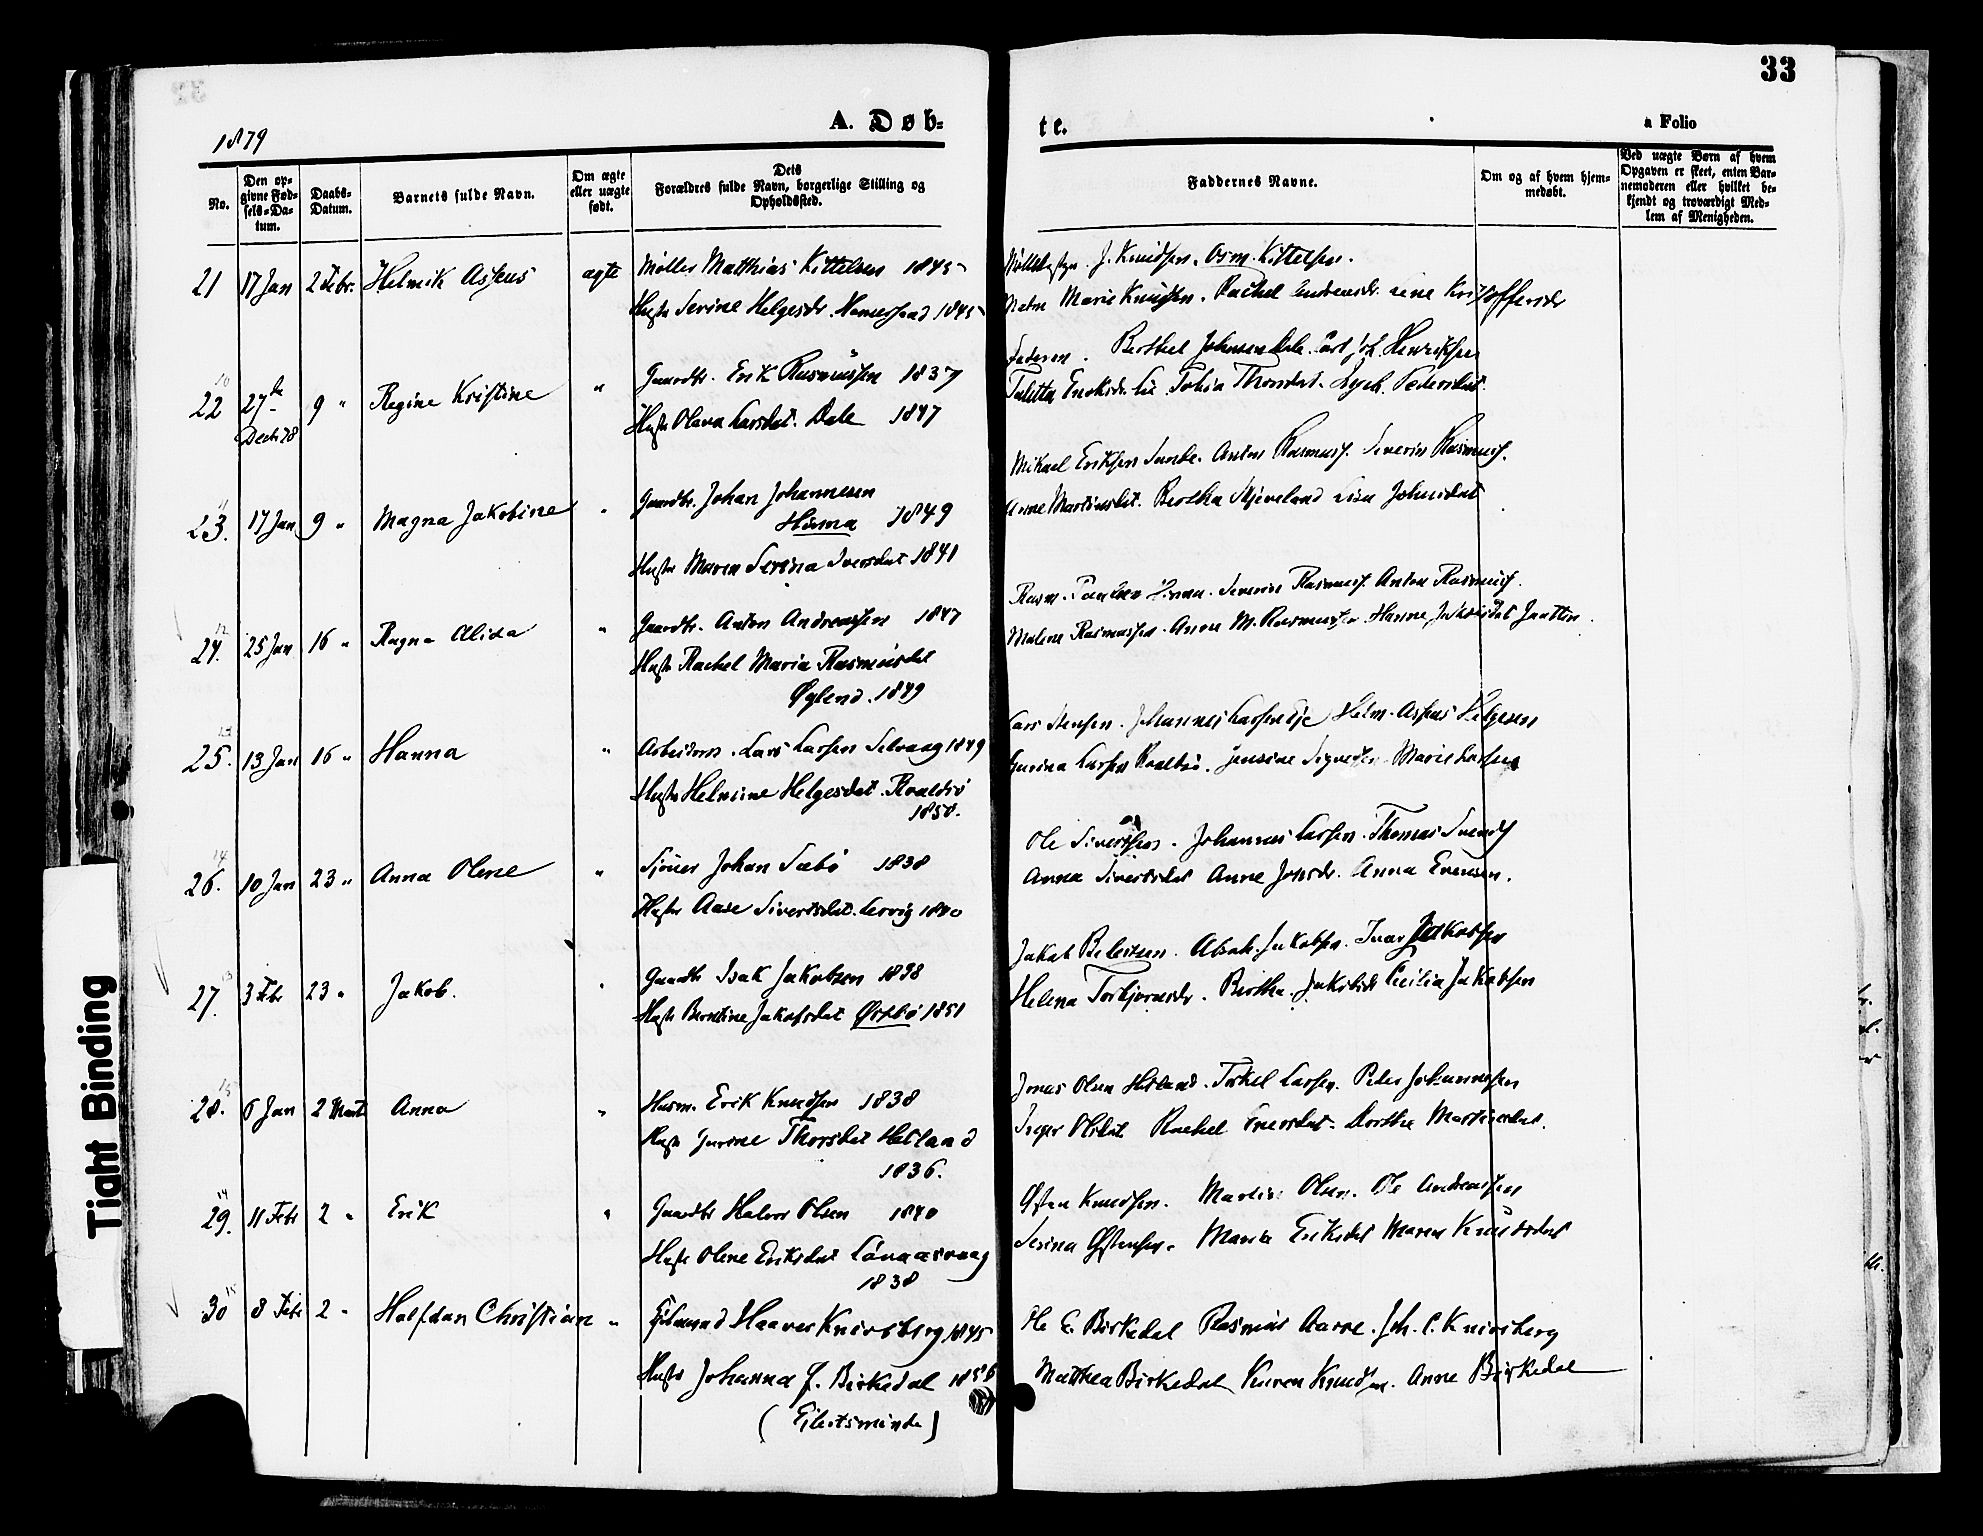 33
1879
A. Døb-
te.
a Folio
No.
Den op-
givne Fød-
sels-Da-
tum.
Daabs-
Datum.
Barnets fulde Navn.
Om ægte
eller uægte
født.
Dets
Forældres fulde Navn, borgerlige Stilling og
Opholdssted.
Faddernes Navne.
Om og af hvem hjem-
medøbt.
Ved uægte Børn af hvem
Opgaven er skeet, enten Bar-
nemoderen eller hvilket be-
kjendt og troværdigt Med-
lem af Menigheden.
21 17 Jan 2 Febr. Helmik Aspeus ægte Møller Matthias Kittelsen 1845
Hustr Serine Helgesdr. 1845
J. Knudsen. Osm. Kittelsen.
Marie Knudsen. Rachel Andreasdr. Kristoffersdr
22 27de Decbr 78 9 " Regine Kristine " Gaardbr. Erik Rasmussen 1837
Hustr Olava Larsdat. Dale 1847
Faderen. Berthel Johnsen Dale. Carl Joh. Henriksen
Talitta Enoksdr. Lie. Tobia Thorsdat. Pedersdat.
23. 17 Jan 9 " Magna Jakobine " Gaardbr. Johan Johannesen
Hinna 1849
Hustr Maren Serina Iversdat 1841
Mikael Eriksen Sunde. Anton Rasmuss. Severin Rasmuss.
Anne Martinsdat. Bertha Skjeveland Lisa Johnsdat
24. 25 Jan 16 " Ragna Alida " Gaardbr. Anton Andreassen 1847
Hustr Rachel Maria Rasmusdat
Øglend. 1849
Rasm. Paulsen Hinna. Severin Rasmuss. Anton Rasmuss.
Malene Rasmussen. Anne M. Rasmussen. Hanne Jakobsdat Jaatten.
25. 13 Jan 16 " Hanna " Arbeidsm. Lars Larsen Selvaag 1849
Hustr Helmine Helgesdat.
1850.
Lars Jensen. Johannes Larsen Eje Helm. Aspeus Helgesen
Gurina Larsen. Jensine Marie Larsen
26. 10 Jan 23 " Anna Olene " Johan Sæbø 1838
Hustr Aase Sivertsdat. Lervig 1840
Ole Sivertsen. Johannes Larsen. Thomas Svends
Anna Sivertsdat Anne Jonsdr. Anna Evensen.
27. 3 Febr 23 " Jakob. " Gaardbr Isak Jakobsen 1838
Hustr Berntine Jakobsdat Østbø 1851
Jakob Jakobsen. Ivar Jakobsen
Helena Torbjørnsdr. Bertha Jakobsdr Cecilia Jakobsen
28. 6 Jan 2 Marts Anna " Husm. Erik Knudsen 1838
Hustr Gurine Thorsdat Hetland
1836.
Jonas Olsen Hetland. Torkel Larsen. Peder Johannessen
Inger Olsdat Rachel Iversdat. Dorthe Martinsdat.
29. 11 Febr 2 " Erik " Gaardbr Halvor Olsen 1840
Hustr Olene Eriksdat
1838
Østen Knudsen. Martin Olsen. Ole Andreassen
Serina Østensen. Marie Eriksdat Maren Knudsdat
30 8 Febr 2 " Halfdan Christian " Haaver Knivsberg 1845
Hustr Johanna F. Birkedal 1856
(Eilertsminde)
Ole E. Birkedal Rasmus Aarre. Joh. C. Knivsberg
Matthea Birkedal Karen Knudsen. Anne Birkedal
Tight Binding